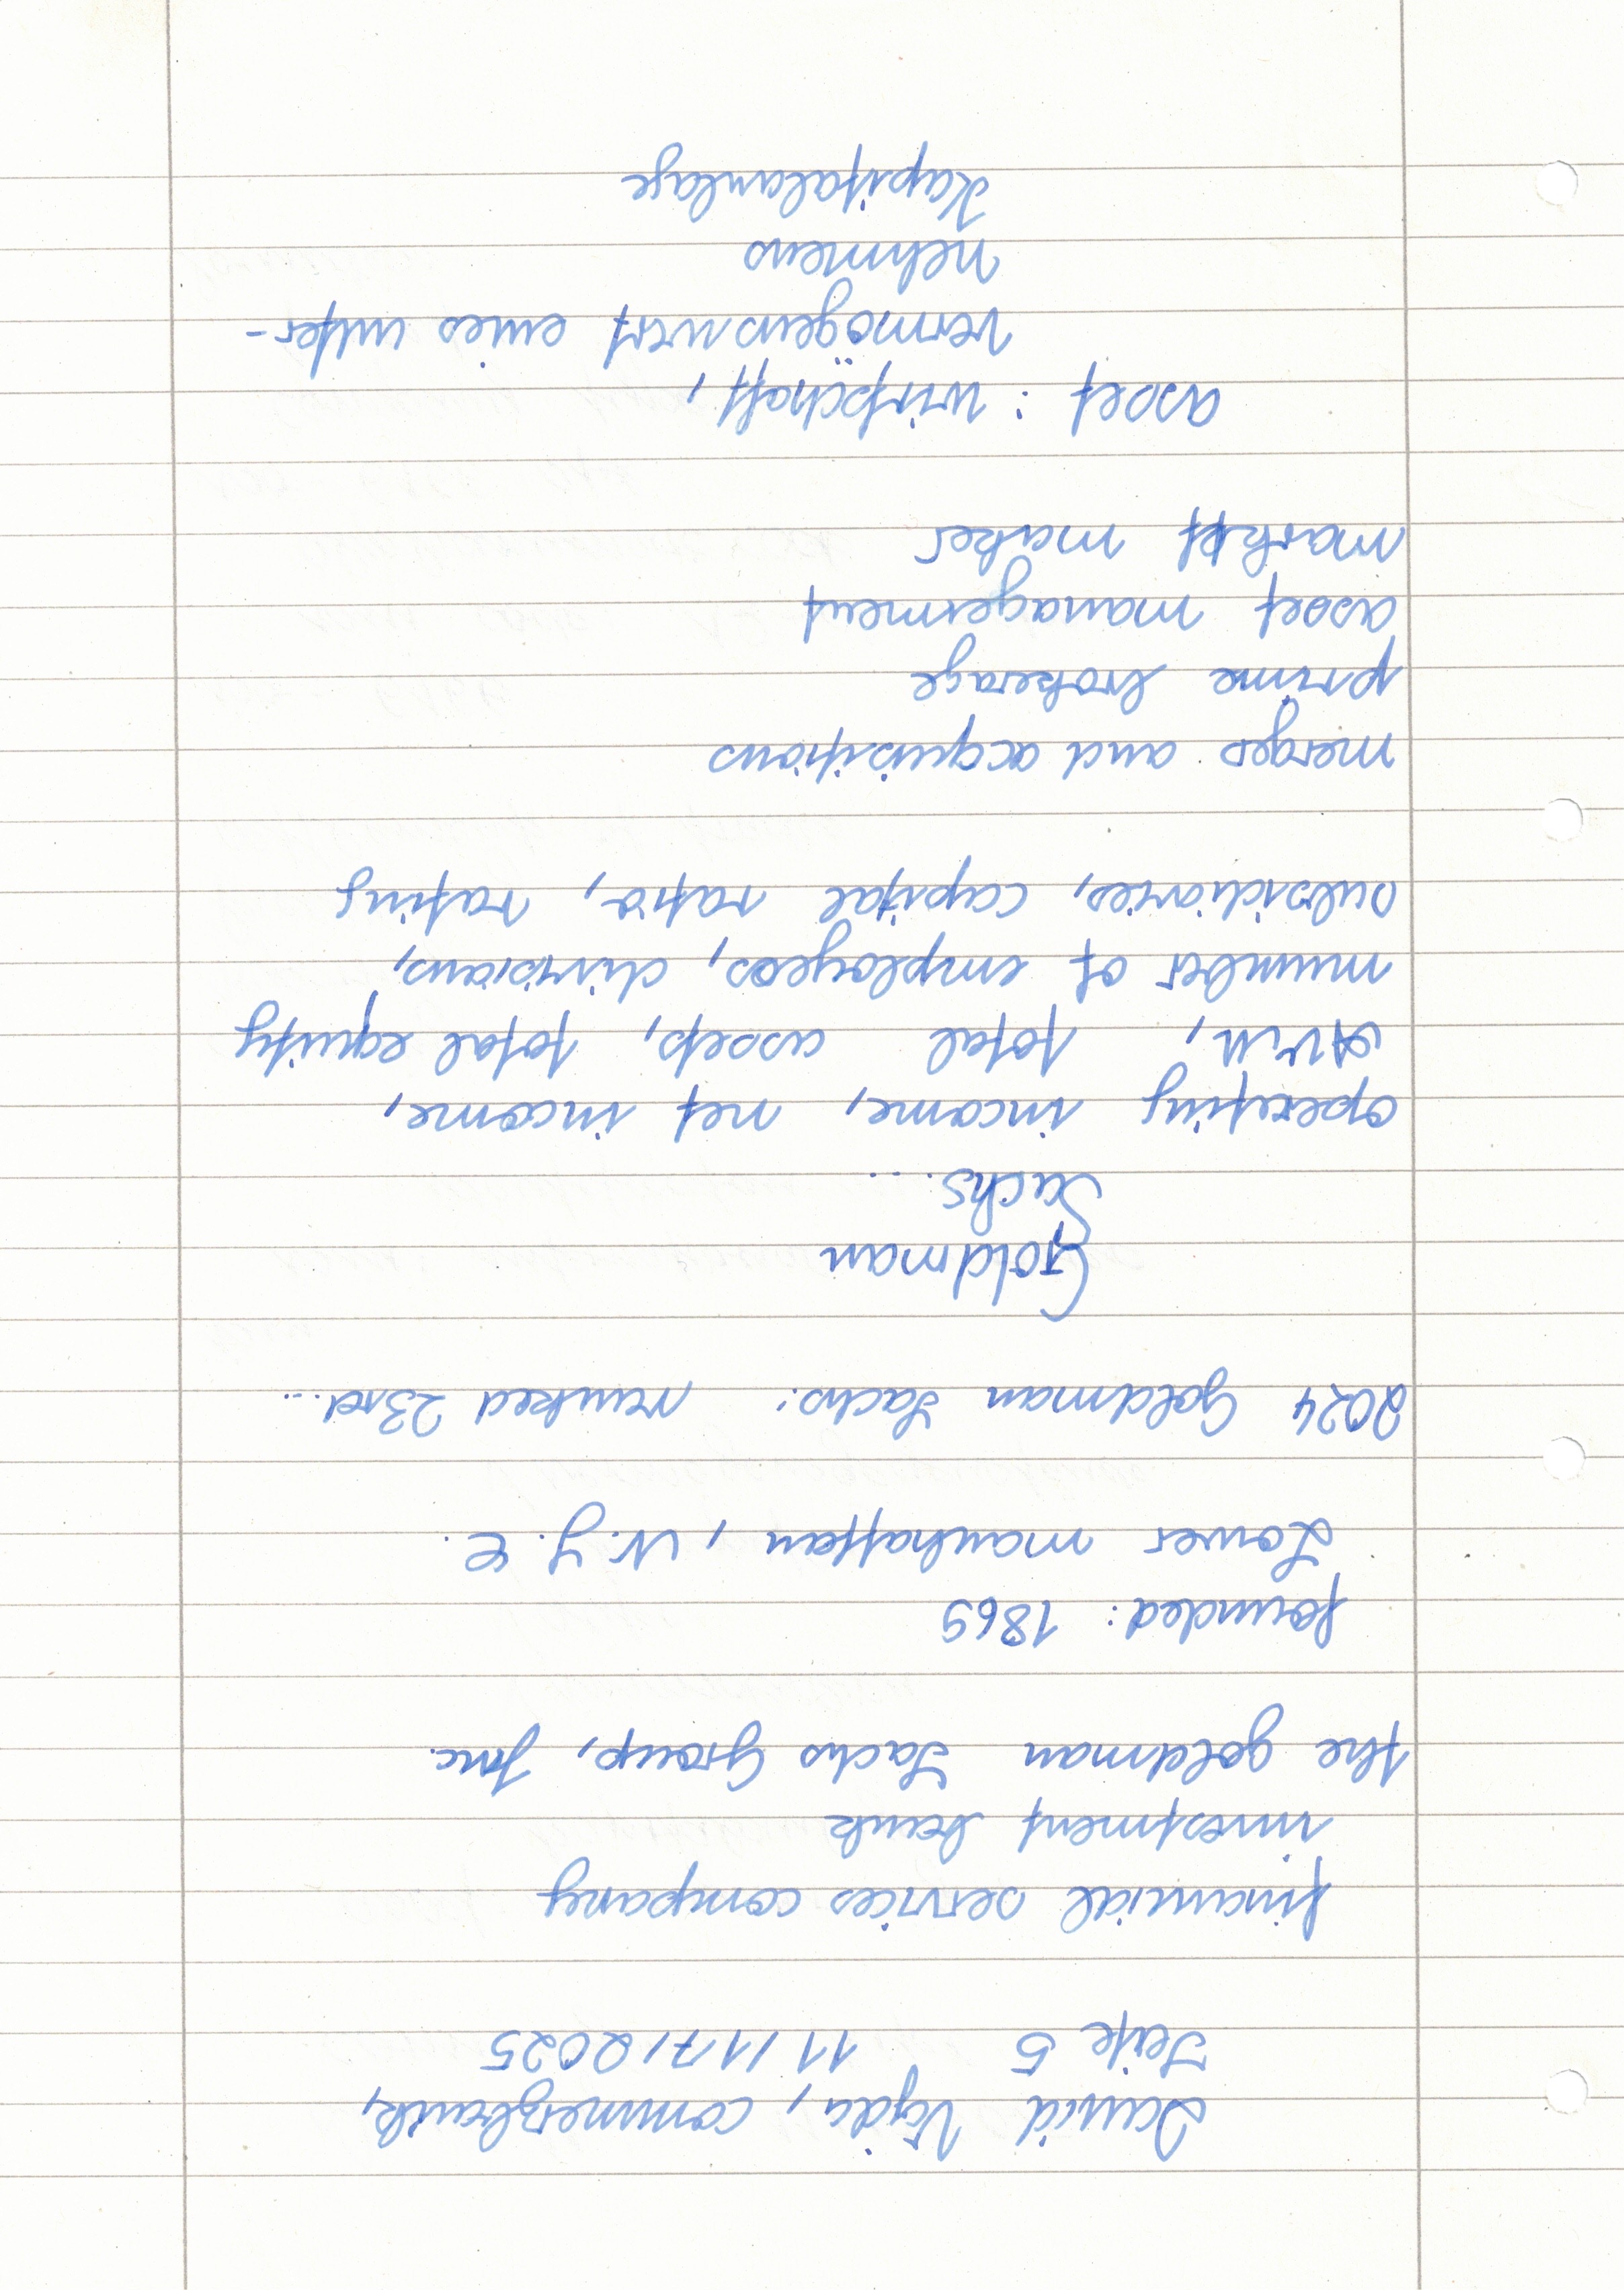 David Vajda, Commerzbank,
Seite 5 11/17/2025
financial services company
investment bank
the goldman Sachs Group, Inc.
founded: 1869
Lower manhattan, N.Y.C.
2024 Goldman Sachs: ranked 23rd...
Goldman
Sachs...
operating income, net income,
AUM, total assets, total equity
number of employees, divisions,
subsidiaries, capital ratio, rating
merges and acquisitions
prime brokerage
asset management
market maker
asset: wirtschaft,
vermögenswert eines unter-
nehmens
Kapitalanlage